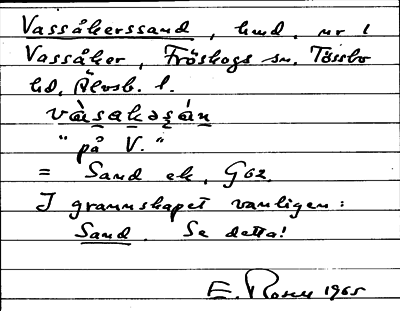 Vassåkerssand, hmd. nr 1
Vassåker, Fröskogs sn. Tössbo
hd. Älvsb. l.
vàsakəsán
"på V."
= Sand ek. G 02.
I grannskapet vanligen:
Sand. Se detta!
E. Rosen 1965